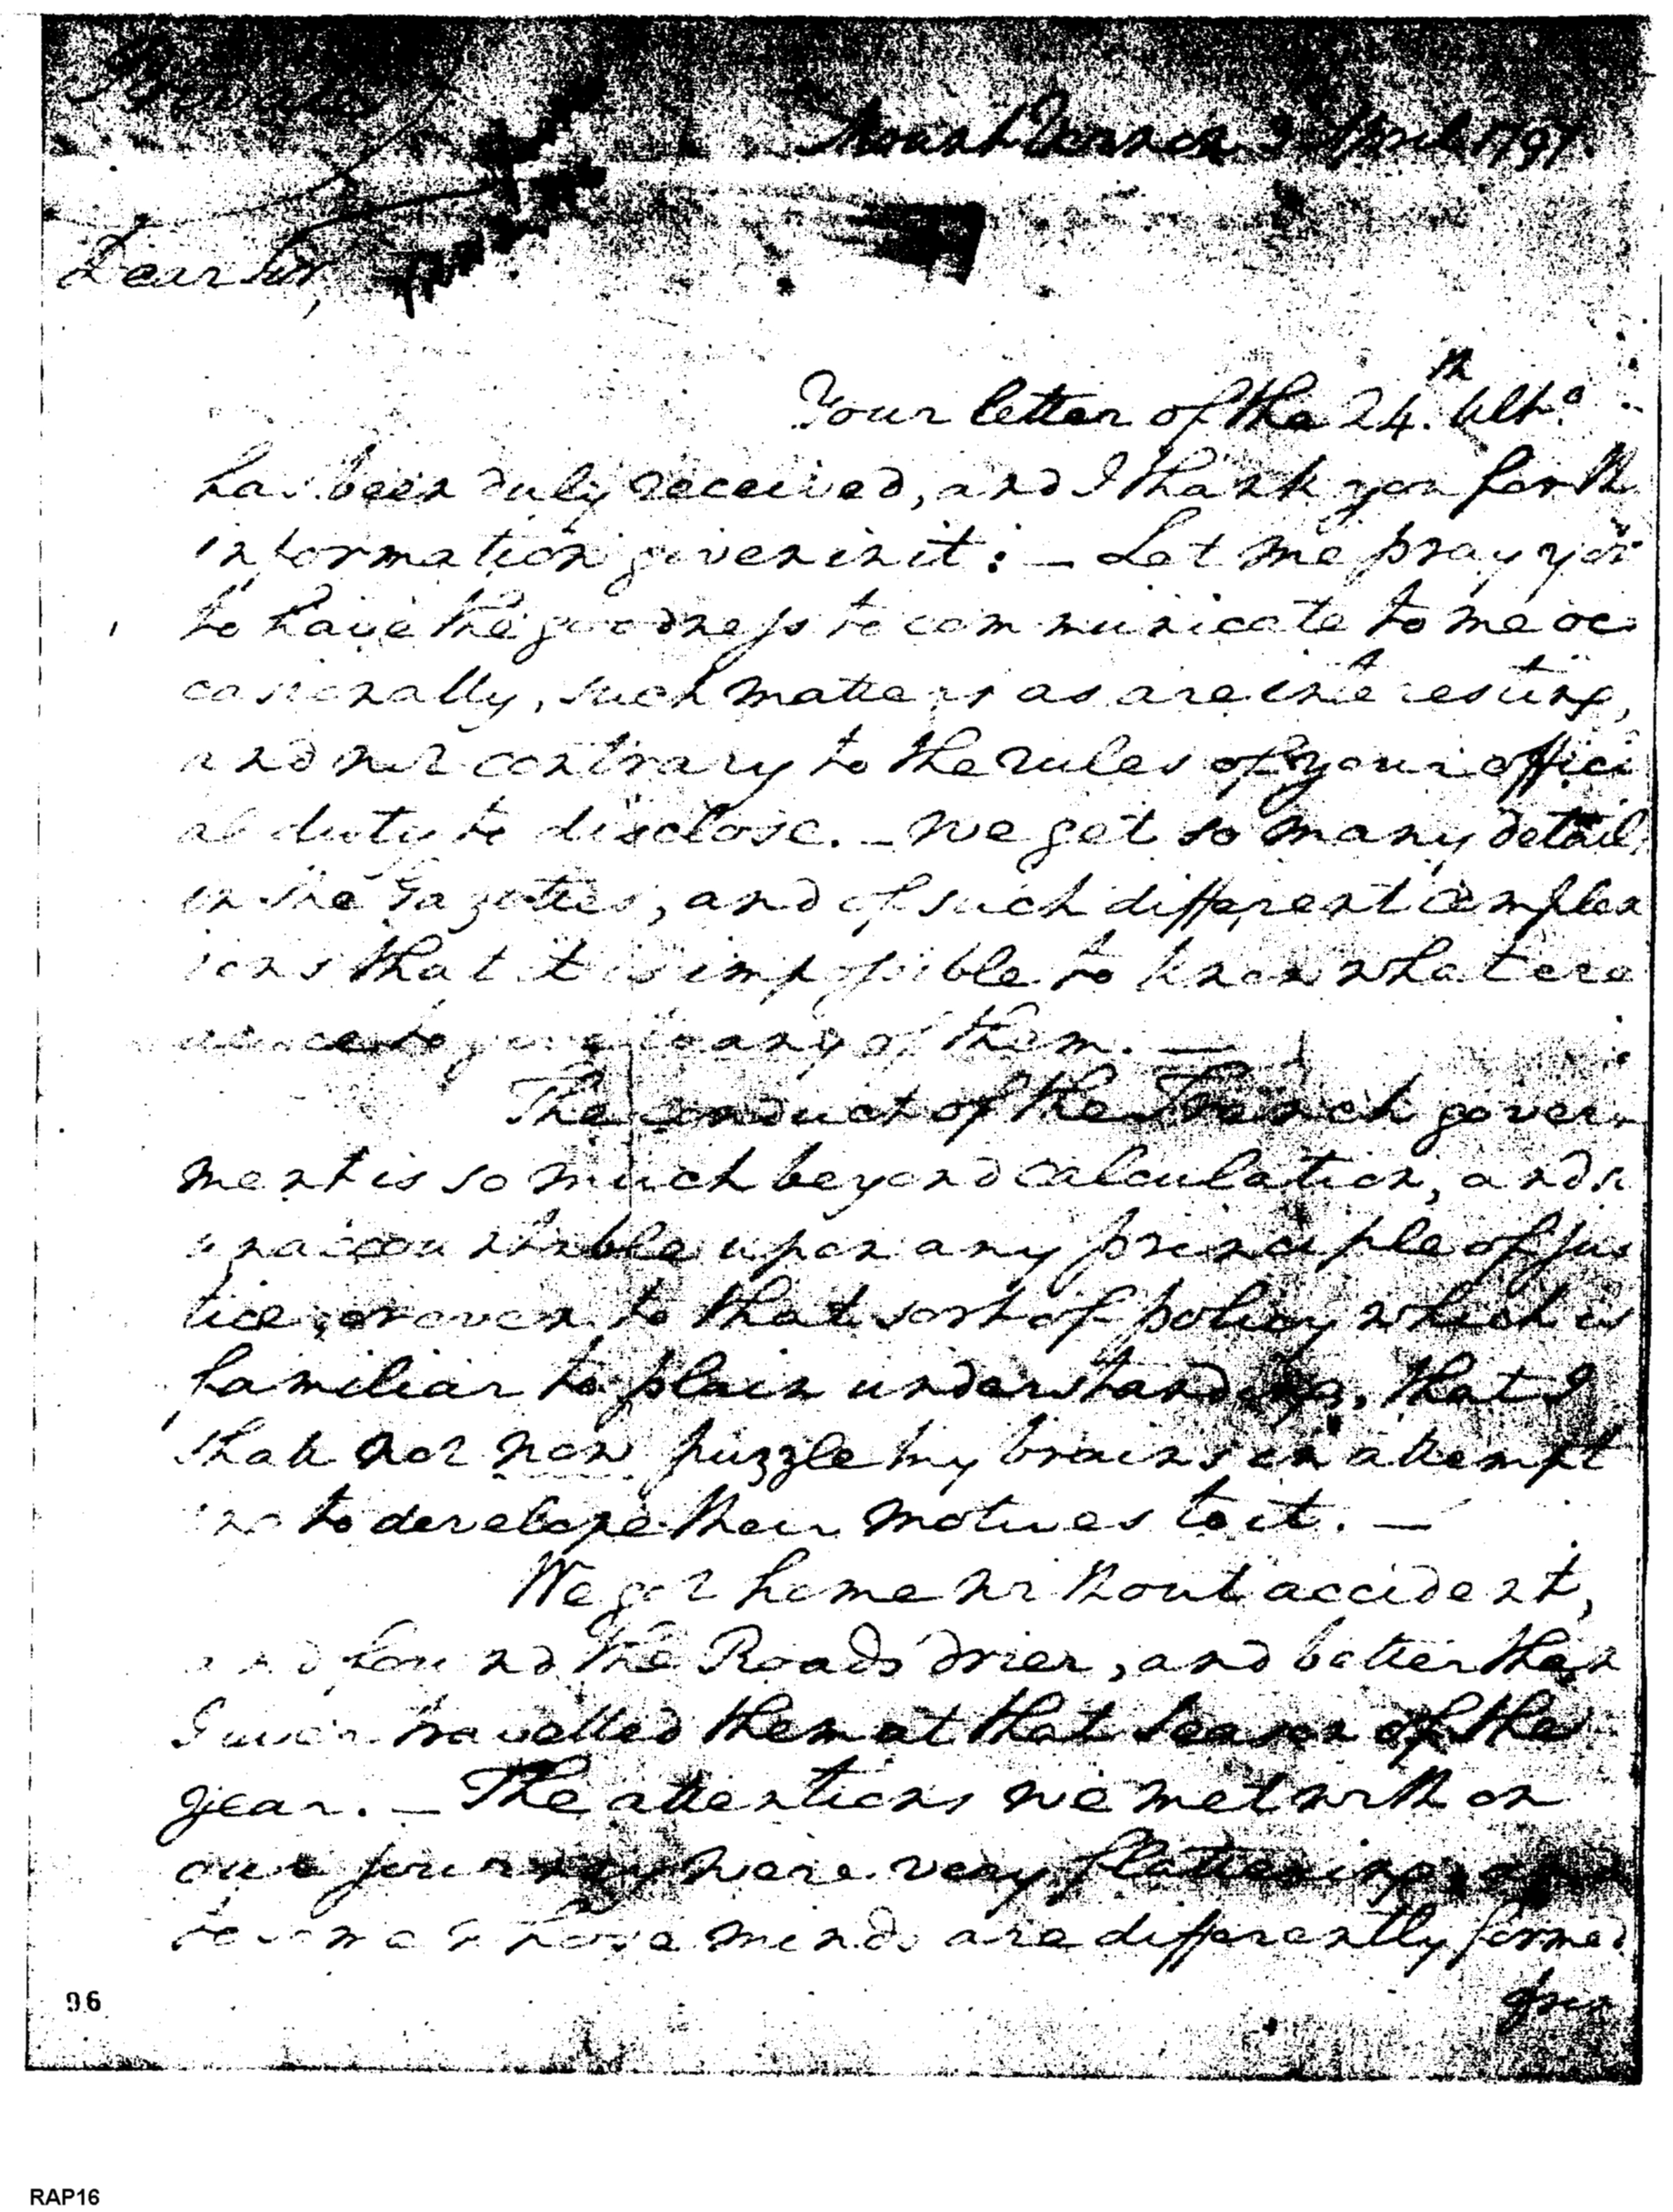 Private
Mount Vernon 3 April 1797.
Dear Sir,
Your letter of the 24.th Ulto
has been duly received, and I thank you for th
information given in it: — Let me pray you
to have the goodness to communicate to me oc
casionally, such matters as are interesting,
and not contrary to the rules of your offici
al duty to disclose. — We get so many detail
in the Gazettes, and of such different complex
ions that it is impossible to know what cre
dence to give to any of them. —
The conduct of the French govern
ment is so much beyond calculation, and so
unaccountable upon any principle of jus
tice, or even to that sort of policy which is
familiar to plain understanding, that I
shall not now puzzle my brains in attempt
ing to develope their motives to it. —
We got home without accident,
and found the Roads drier, and better than
I ever travelled them at that Season of the
year. — The attentions we met with on
our journey were very flattering, and
to some whose minds are differently formed
from
96
RAP16